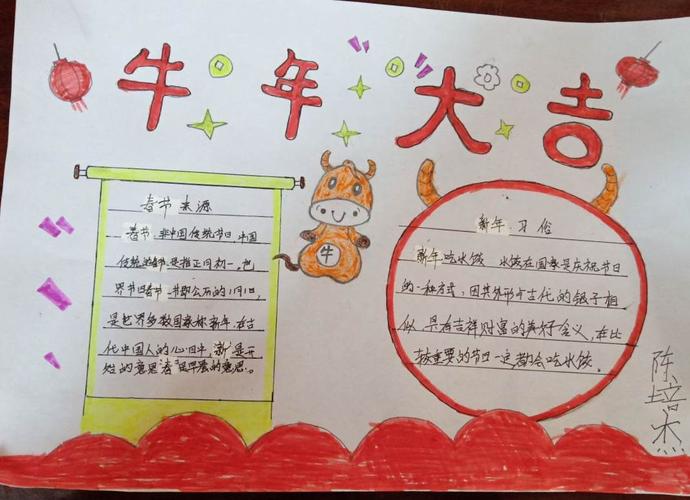 牛年大吉
春节来源
春节,非中国传统节日,中国
传统的春节是指正月初一,把
界节日春节一节即公历的1月1日,
是世界多数国家称新年,在古
代中国人的心目中,新是开
姓的意思春是早晨的意思。
牛
新年习俗
新年吃水饺 水饺在国家是庆祝节日
的一种方式,因其外形与古代的银子相
似,具有吉祥财富的美好含义,在比
较重要的节日一定都会吃水饺.
陈培杰